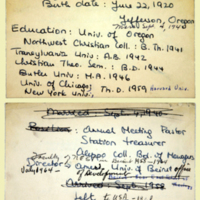 Birth date: June 22, 1920
Jefferson, Oregon
Education: Univ. of Oregon
Northwest Christian Coll: B. Th. 1941
Transylvania Univ: A.B. 1942
Christian Theo. Sem.: B.D. 1944
Butler Univ: M.A. 1946
Univ. of Chicago;
New York Univ; Th.D. 1959 Harvard Univ.
Married Sept. 4, 1940
Positions: Annual Meeting Pastor
Station treasurer
Aleppo Coll. Bd. of Managers
Director Univ. of Beirut
July 1964-
Left to USA